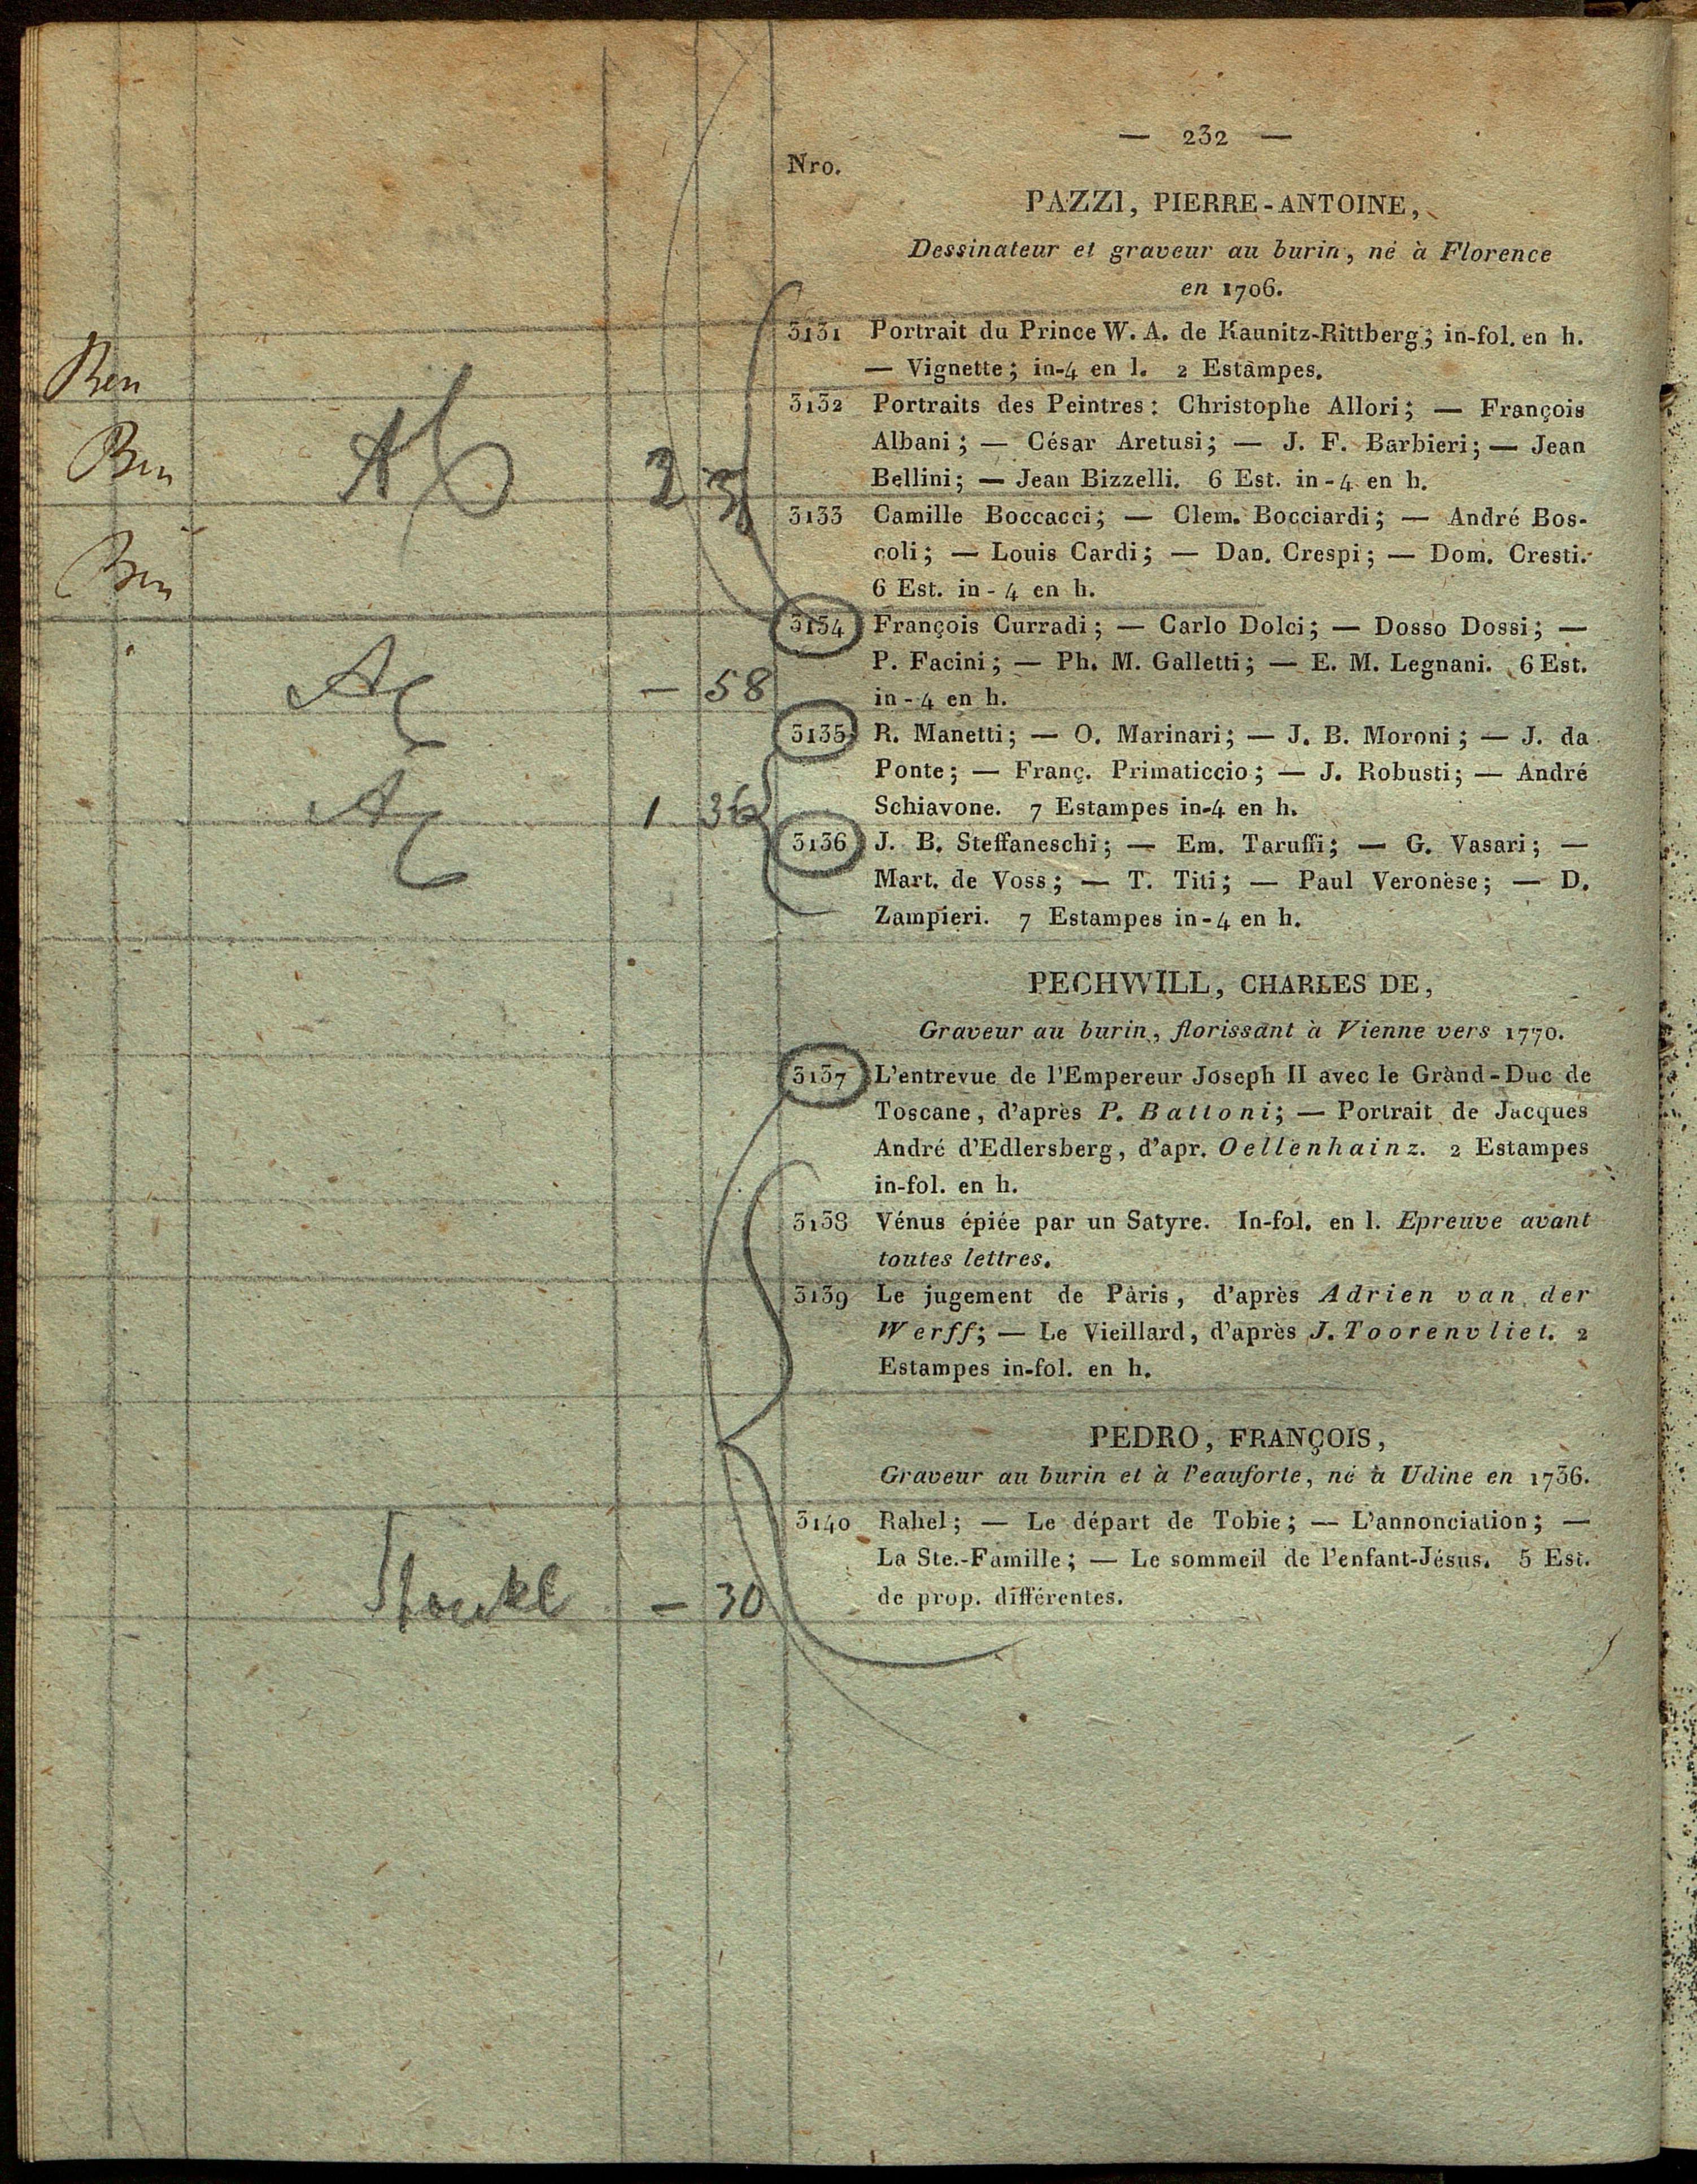 — 232 —
Nro.
PAZZI, PIERRE-ANTOINE,
Dessinateur et graveur au burin, né à Florence
en 1706.
3131 Portrait du Prince W. A. de Kaunitz-Rittberg; in-fol. en h.
— Vignette; in-4 en l. 2 Estampes.
Ben
3132 Portraits des Peintres: Christophe Allori; — François
Albani; — César Aretusi; — J. F. Barbieri; — Jean
Bellini; — Jean Bizzelli. 6 Est. in-4 en h.
Ben
2
3133 Camille Boccacci; — Clem. Bocciardi; — André Bos-
coli; — Louis Cardi; — Dan. Crespi; — Dom. Cresti.
6 Est. in-4 en h.
Ben
3134 François Curradi; — Carlo Dolci; — Dosso Dossi; —
P. Facini; — Ph. M. Galletti; — E. M. Legnani. 6 Est.
in-4 en h.
— 58
3135 R. Manetti; — O. Marinari; — J. B. Moroni; — J. da
Ponte; — Franç. Primaticcio; — J. Robusti; — André
Schiavone. 7 Estampes in-4 en h.
1 36
3136 J. B. Steffaneschi; — Em. Taruffi; — G. Vasari; —
Mart. de Voss; — T. Titi; — Paul Veronèse; — D.
Zampieri. 7 Estampes in-4 en h.
PECHWILL, CHARLES DE,
Graveur au burin, florissant à Vienne vers 1770.
3137 L'entrevue de l'Empereur Joseph II avec le Grand-Duc de
Toscane, d'après P. Battoni; — Portrait de Jacques
André d'Edlersberg, d'apr. Oellenhainz. 2 Estampes
in-fol. en h.
3138 Vénus épiée par un Satyre. In-fol. en l. Epreuve avant
toutes lettres.
3139 Le jugement de Pàris, d'après Adrien van der
Werff; — Le Vieillard, d'après J. Toorenvliet. 2
Estampes in-fol. en h.
PEDRO, FRANÇOIS,
Graveur au burin et à l'eauforte, né à Udine en 1736.
3140 Rahel; — Le départ de Tobie; — L'annonciation; —
La Ste.-Famille; — Le sommeil de l'enfant-Jésus. 5 Est.
de prop. différentes.
— 30